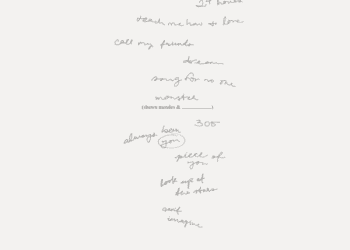 24 hours
teach me how to love
call my friends
dream
song for no one
monster
(shawn mendes & ____________)
305
always been
you
piece of
you
look up at
the stars
can't
imagine